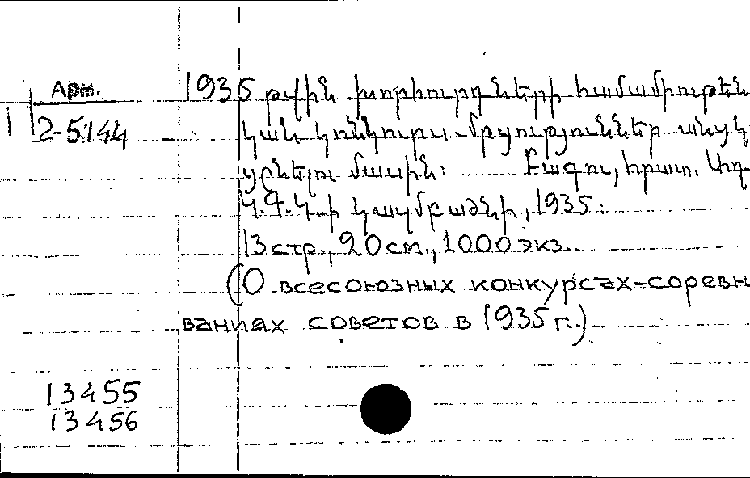 Арт.
1935 թվին խորհուրդների համամիութեն
1 2-5144 կան կոնկուրս-մրցություններ անցկ
ցընելու մասին: Բագու, հրատ. Ադր
Կ.Գ.Կ-ի կազմբաժնի, 1935.
13 стр., 20 см., 1000 экз.
(О всесоюзных конкурсах-соревн
ваниях советов в 1935 г.)
13455
13456